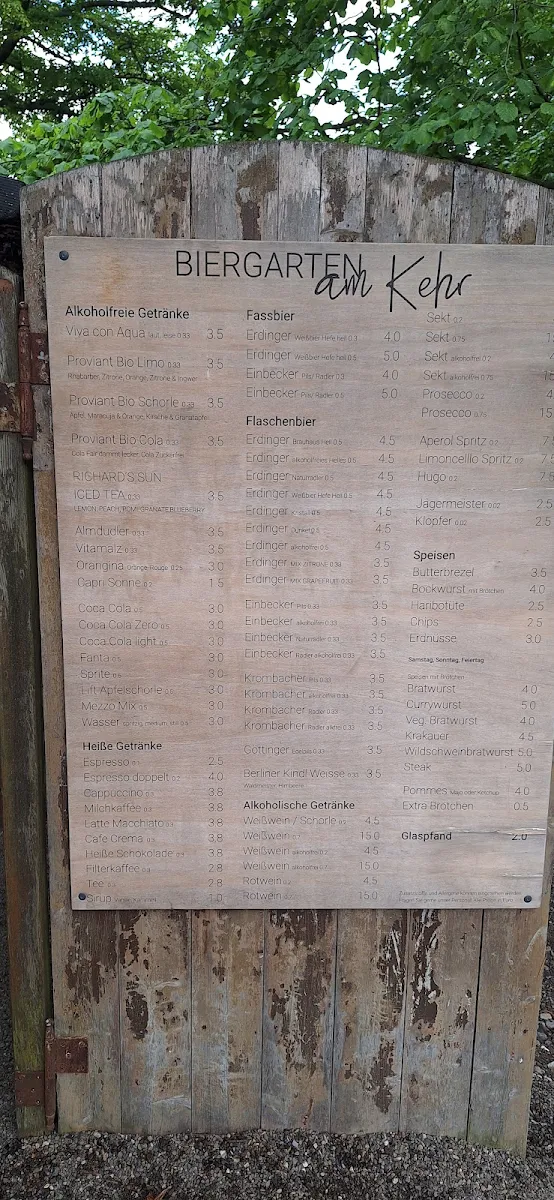 BIERGARTEN
am Kehr
Alkoholfreie Getränke
Viva con Aqua laut, leise 0.33 3.5
Proviant Bio Limo 0.33 3.5
Rhabarber, Zitrone, Orange, Zitrone & Ingwer
Proviant Bio Schorle 0.33 3.5
Apfel, Maracuja & Orange, Kirsche & Granatapfel
Proviant Bio Cola 0.33 3.5
RICHARD'S SUN
ICED TEA 0.33 3.5
LEMON, PEACH, POMEGRANATE BLUEBERRY
Almdudler 0.33 3.5
Vitamalz 0.33 3.5
Orangina Orange Rouge 0.25 3.0
Capri Sonne 0.2 1.5
Coca Cola 0.5 3.0
Coca Cola Zero 0.5 3.0
Coca Cola light 0.5 3.0
Fanta 0.5 3.0
Sprite 0.5 3.0
Lift Apfelschorle 0.5 3.0
Mezzo Mix 0.5 3.0
Wasser spritzig, medium, still 0.5 3.0
Heiße Getränke
Espresso 2.5
Espresso doppelt 0.2 4.0
Cappuccino 3.8
Milchkaffee 3.8
Latte Macchiato 3.8
Cafe Crema 3.8
Heiße Schokolade 3.8
Filterkaffee 2.8
Tee 2.8
Sirup 1.0
Fassbier
Erdinger Weißbier Hefe hell 0.3 4.0
Erdinger Weißbier Hefe hell 0.5 5.0
Einbecker Pils/ Radler 0.3 4.0
Einbecker Pils/ Radler 0.5 5.0
Flaschenbier
Erdinger Brauhaus Hell 0.5 4.5
Erdinger alkoholfreies Helles 0.5 4.5
Erdinger Naturradler 0.5 4.5
Erdinger Weißbier Hefe Hell 0.5 4.5
Erdinger Kristall 0.5 4.5
Erdinger Dunkel 0.5 4.5
Erdinger alkoholfrei 0.5 4.5
Erdinger MIX ZITRONE 0.33 3.5
Erdinger MIX GRAPEFRUIT 0.33 3.5
Einbecker Pils 0.33 3.5
Einbecker alkoholfrei 0.33 3.5
Einbecker Naturradler 0.33 3.5
Einbecker Radler alkoholfrei 0.33 3.5
Krombacher Pils 0.33 3.5
Krombacher alkoholfrei 0.33 3.5
Krombacher Radler 0.33 3.5
Krombacher Radler alkfrei 0.33 3.5
Göttinger Edelpils 0.33 3.5
Berliner Kindl Weisse 0.33 3.5
Waldmeister, Himbeere
Alkoholische Getränke
Weißwein / Schorle 0.2 4.5
Weißwein 15.0
Weißwein alkoholfrei 0.2 4.5
Weißwein alkoholfrei 0.7 15.0
Rotwein 0.2 4.5
Rotwein 15.0
Sekt
Sekt 0.75
Sekt alkoholfrei 0.2
Sekt alkoholfrei 0.75
Prosecco 0.2
Prosecco 0.75
Aperol Spritz 0.2
Limoncello Spritz 0.2
Hugo 0.2
Jägermeister 0.02 2.5
Klopfer 0.02 2.5
Speisen
Butterbrezel 3.5
Bockwurst mit Brötchen 4.0
Haribotüte 2.5
Chips 2.5
Erdnüsse 3.0
Samstag, Sonntag, Feiertag
Speisen mit Brötchen
Bratwurst 4.0
Currywurst 5.0
Veg. Bratwurst 4.0
Krakauer 4.5
Wildschweinbratwurst 5.0
Steak 5.0
Pommes Mayo oder Ketchup 4.0
Extra Brötchen 0.5
Glaspfand 2.0